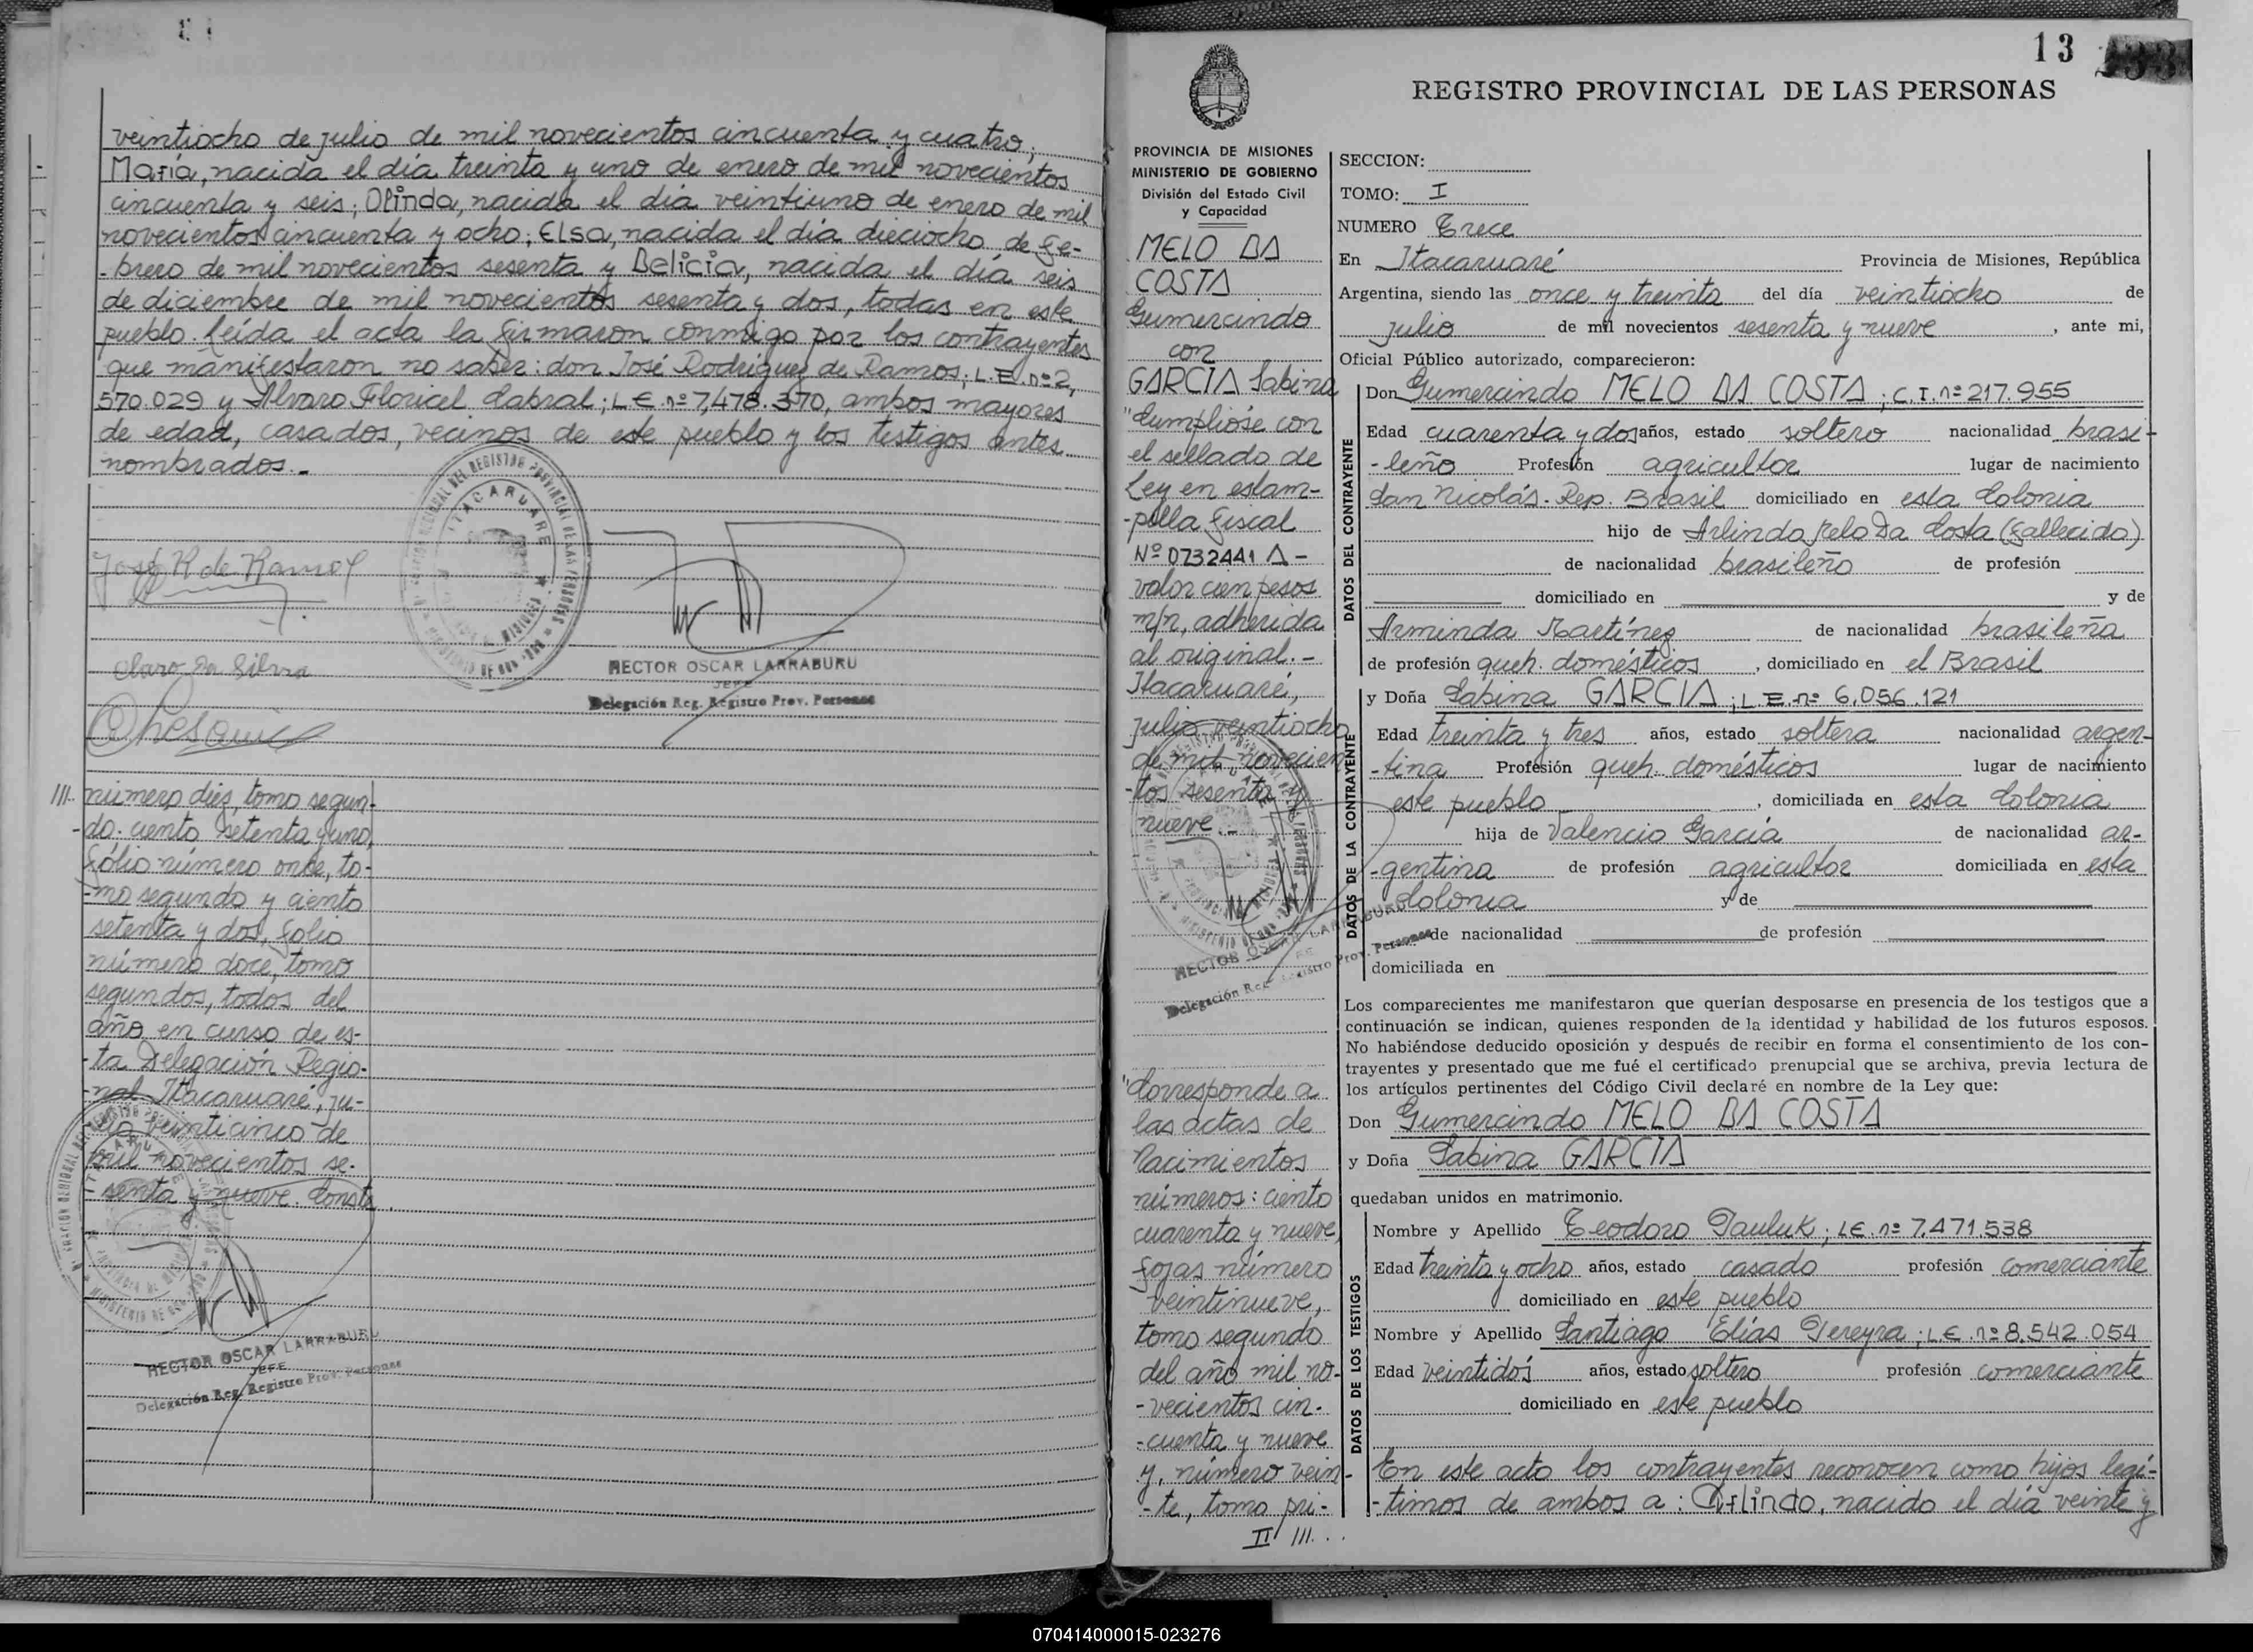 veintiocho de julio de mil novecientos cincuenta y cuatro;
María, nacida el día treinta y uno de enero de mil novecientos
cincuenta y seis; Olinda, nacida el día veintiuno de enero de mil
novecientos cincuenta y ocho; Elsa, nacida el día dieciocho de fe-
-brero de mil novecientos sesenta y Belicia, nacida el día seis
de diciembre de mil novecientos sesenta y dos, todas en este
pueblo. Leída el acta la firmaron conmigo por los contrayentes
que manifestaron no saber: don José Rodriguez de Ramos, L.E. nº 2,
570.029 y Alvaro Floricel Cabral; L.E. nº 7,478.370, ambos mayores
de edad, casados, vecinos de este pueblo y los testigos antes
nombrados.-
José R de Ramos
HECTOR OSCAR LARRABURU
JEFE
Delegación Reg. Registro Prov. Personas
III.. número diez, tomo segun-
-do. ciento setenta y uno,
folio número once, to-
-mo segundo y ciento
setenta y dos, folio
número doce, tomo
segundos, todos del
año en curso de es-
-ta Delegación Regio-
-nal Itacaruaré, ju-
-lio veinticinco de
mil novecientos se-
-senta y nueve. Conste.
HECTOR OSCAR LARRABURU
JEFE
Delegación Reg. Registro Prov. Personas
13
REGISTRO PROVINCIAL DE LAS PERSONAS
PROVINCIA DE MISIONES
MINISTERIO DE GOBIERNO
División del Estado Civil
y Capacidad
MELO DA
COSTA
Gumercindo
con
GARCIA Sabina
"Cumplióse con
el sellado de
Ley en estam-
-pilla fiscal
Nº 0732441 A -
valor cien pesos
m/n, adherida
al original.-
Itacaruaré,
julio veintiocho
de mil novecien-
-tos sesenta y
nueve.-
HECTOR OSCAR LARRABURU
Delegación Reg. Registro Prov. Personas
"Corresponde a
las actas de
Nacimientos
números: ciento
cuarenta y nueve,
fojas número
veintinueve,
tomo segundo
del año mil no-
-vecientos cin-
-cuenta y nueve
y, número vein-
-te, tomo pri-
II III...
SECCION:
TOMO: I
NUMERO Trece
En Itacaruaré Provincia de Misiones, República
Argentina, siendo las once y treinta del día veintiocho de
julio de mil novecientos sesenta y nueve, ante mi,
Oficial Público autorizado, comparecieron:
DATOS DEL CONTRAYENTE
Don Gumercindo MELO DA COSTA; C.I. nº 217.955
Edad cuarenta y dos años, estado soltero nacionalidad brasi-
-leño Profesión agricultor lugar de nacimiento
San Nicolás-Rep. Brasil domiciliado en esta Colonia
hijo de Arlindo Melo Da Costa (fallecido)
de nacionalidad brasileño de profesión
domiciliado en y de
Arminda Martínez de nacionalidad brasileña
de profesión queh. domésticos, domiciliado en el Brasil
DATOS DE LA CONTRAYENTE
y Doña Sabina GARCIA; L.E. nº 6.056.121
Edad treinta y tres años, estado soltera nacionalidad argen-
-tina Profesión queh. domésticos lugar de nacimiento
este pueblo, domiciliada en esta Colonia
hija de Valencio García de nacionalidad ar-
-gentina de profesión agricultor domiciliada en esta
Colonia y de
de nacionalidad de profesión
domiciliada en
Los comparecientes me manifestaron que querían desposarse en presencia de los testigos que a
continuación se indican, quienes responden de la identidad y habilidad de los futuros esposos.
No habiéndose deducido oposición y después de recibir en forma el consentimiento de los con-
trayentes y presentado que me fué el certificado prenupcial que se archiva, previa lectura de
los artículos pertinentes del Código Civil declaré en nombre de la Ley que:
Don Gumercindo MELO DA COSTA
y Doña Sabina GARCIA
quedaban unidos en matrimonio.
DATOS DE LOS TESTIGOS
Nombre y Apellido Teodoro Pauluk; L.E. nº 7.471.538
Edad treinta y ocho años, estado casado profesión comerciante
domiciliado en este pueblo
Nombre y Apellido Santiago Elías Pereyra; L.E. nº 8.542.054
Edad veintidós años, estado soltero profesión comerciante
domiciliado en este pueblo
En este acto los contrayentes reconocen como hijos legí-
-timos de ambos a: Arlindo, nacido el día veinte y
070414000015-023276